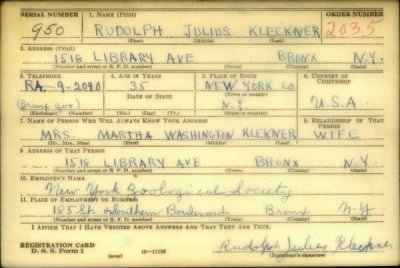 SERIAL NUMBER 1. NAME (Print) ORDER NUMBER
950 RUDOLPH JULIUS KLECKNER 2035
(First) (Middle) (Last)
2. ADDRESS (Print)
1518 LIBRARY AVE. BRONX N.Y.
(Number and street or R. F. D. number) (Town) (County) (State)
3. TELEPHONE 4. AGE IN YEARS 5. PLACE OF BIRTH 6. COUNTRY OF CITIZENSHIP
RA. 9-2090 35 NEW YORK CO.
DATE OF BIRTH (Town or county)
N.Y. U.S.A.
(Exchange) (Number) (Mo.) (Day) (Yr.) (State or country)
7. NAME OF PERSON WHO WILL ALWAYS KNOW YOUR ADDRESS 8. RELATIONSHIP OF THAT PERSON
MRS. MARTHA WASHINGTON KLECKNER WIFE
(Mr., Mrs., Miss) (First) (Middle) (Last)
9. ADDRESS OF THAT PERSON
1518 LIBRARY AVE BRONX N.Y.
(Number and street or R. F. D. number) (Town) (County) (State)
10. EMPLOYER'S NAME
New York Zoological Society
11. PLACE OF EMPLOYMENT OR BUSINESS
185 St. Southern Boulevard Bronx N.Y
(Number and street or R. F. D. number) (Town) (County) (State)
I AFFIRM THAT I HAVE VERIFIED ABOVE ANSWERS AND THAT THEY ARE TRUE.
REGISTRATION CARD
D. S. S. Form 1 (over) 16-17105 Rudolph Julius Kleckner
(Registrant's signature)